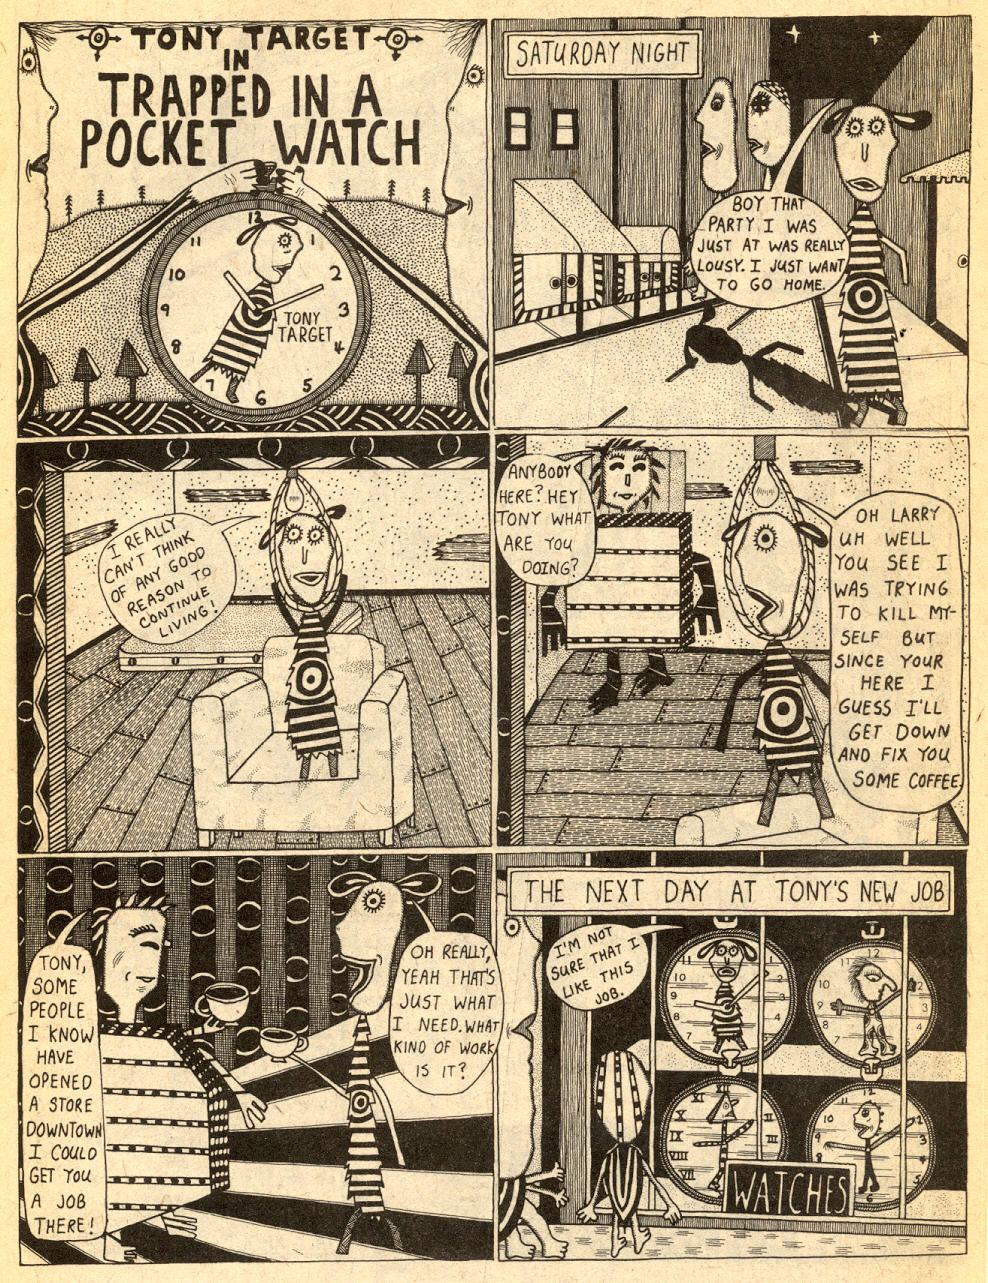 TONY TARGET
IN
TRAPPED IN A
POCKET WATCH
12
11
1
10
2
9
3
TONY
TARGET
8
4
7
5
6
SATURDAY NIGHT
BOY THAT
PARTY I WAS
JUST AT WAS REALLY
LOUSY. I JUST WANT
TO GO HOME.
I REALLY
CAN'T THINK
OF ANY GOOD
REASON TO
CONTINUE
LIVING!
ANYBODY
HERE? HEY
TONY WHAT
ARE YOU
DOING?
OH LARRY
UH WELL
YOU SEE I
WAS TRYING
TO KILL MY-
SELF BUT
SINCE YOUR
HERE I
GUESS I'LL
GET DOWN
AND FIX YOU
SOME COFFEE
TONY,
SOME
PEOPLE
I KNOW
HAVE
OPENED
A STORE
DOWNTOWN
I COULD
GET YOU
A JOB
THERE!
OH REALLY,
YEAH THAT'S
JUST WHAT
I NEED. WHAT
KIND OF WORK
IS IT?
THE NEXT DAY AT TONY'S NEW JOB
I'M NOT
SURE THAT I
LIKE THIS
JOB.
WATCHES